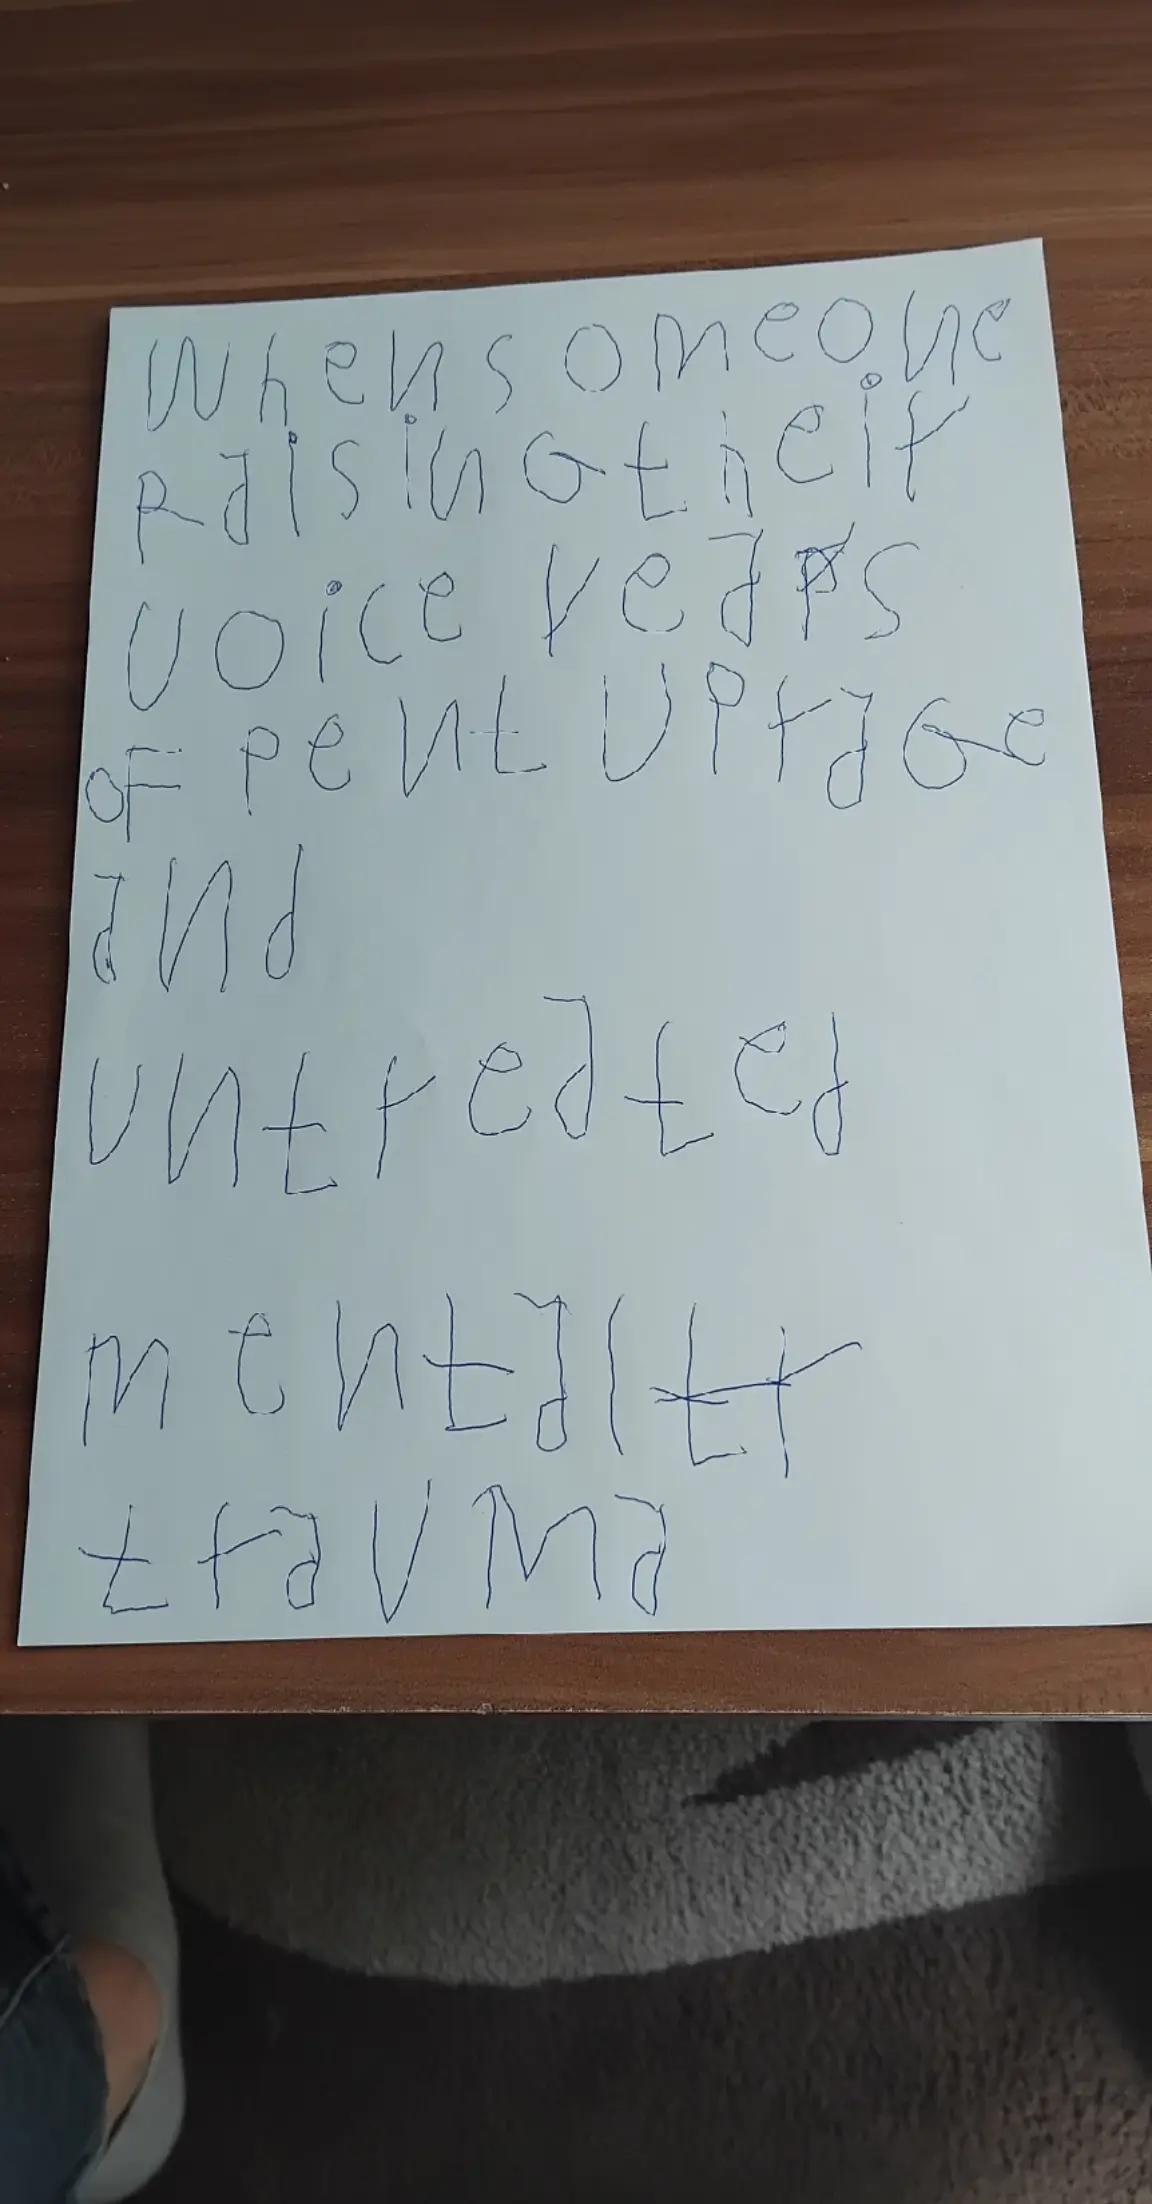 When someone
Raising their
voice years
of pent up rage
and
untreated
mental tr
trauma